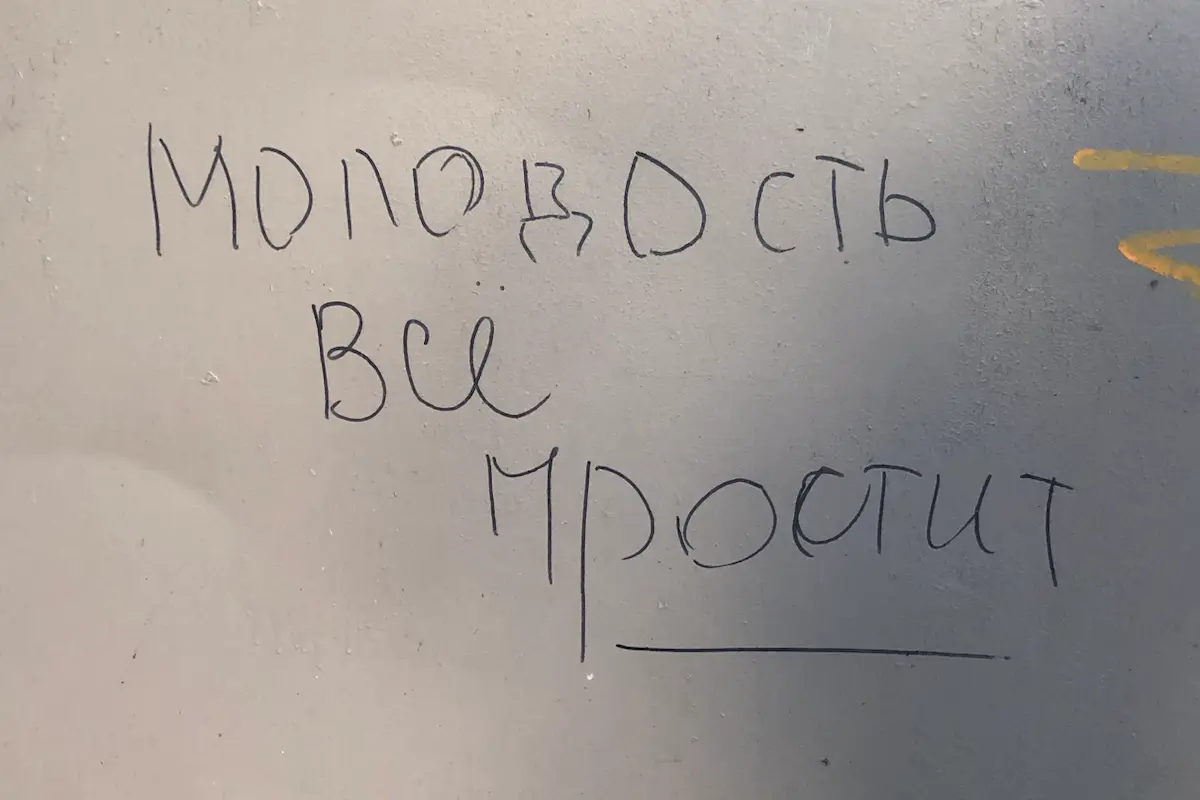 Молодость
всё
простит